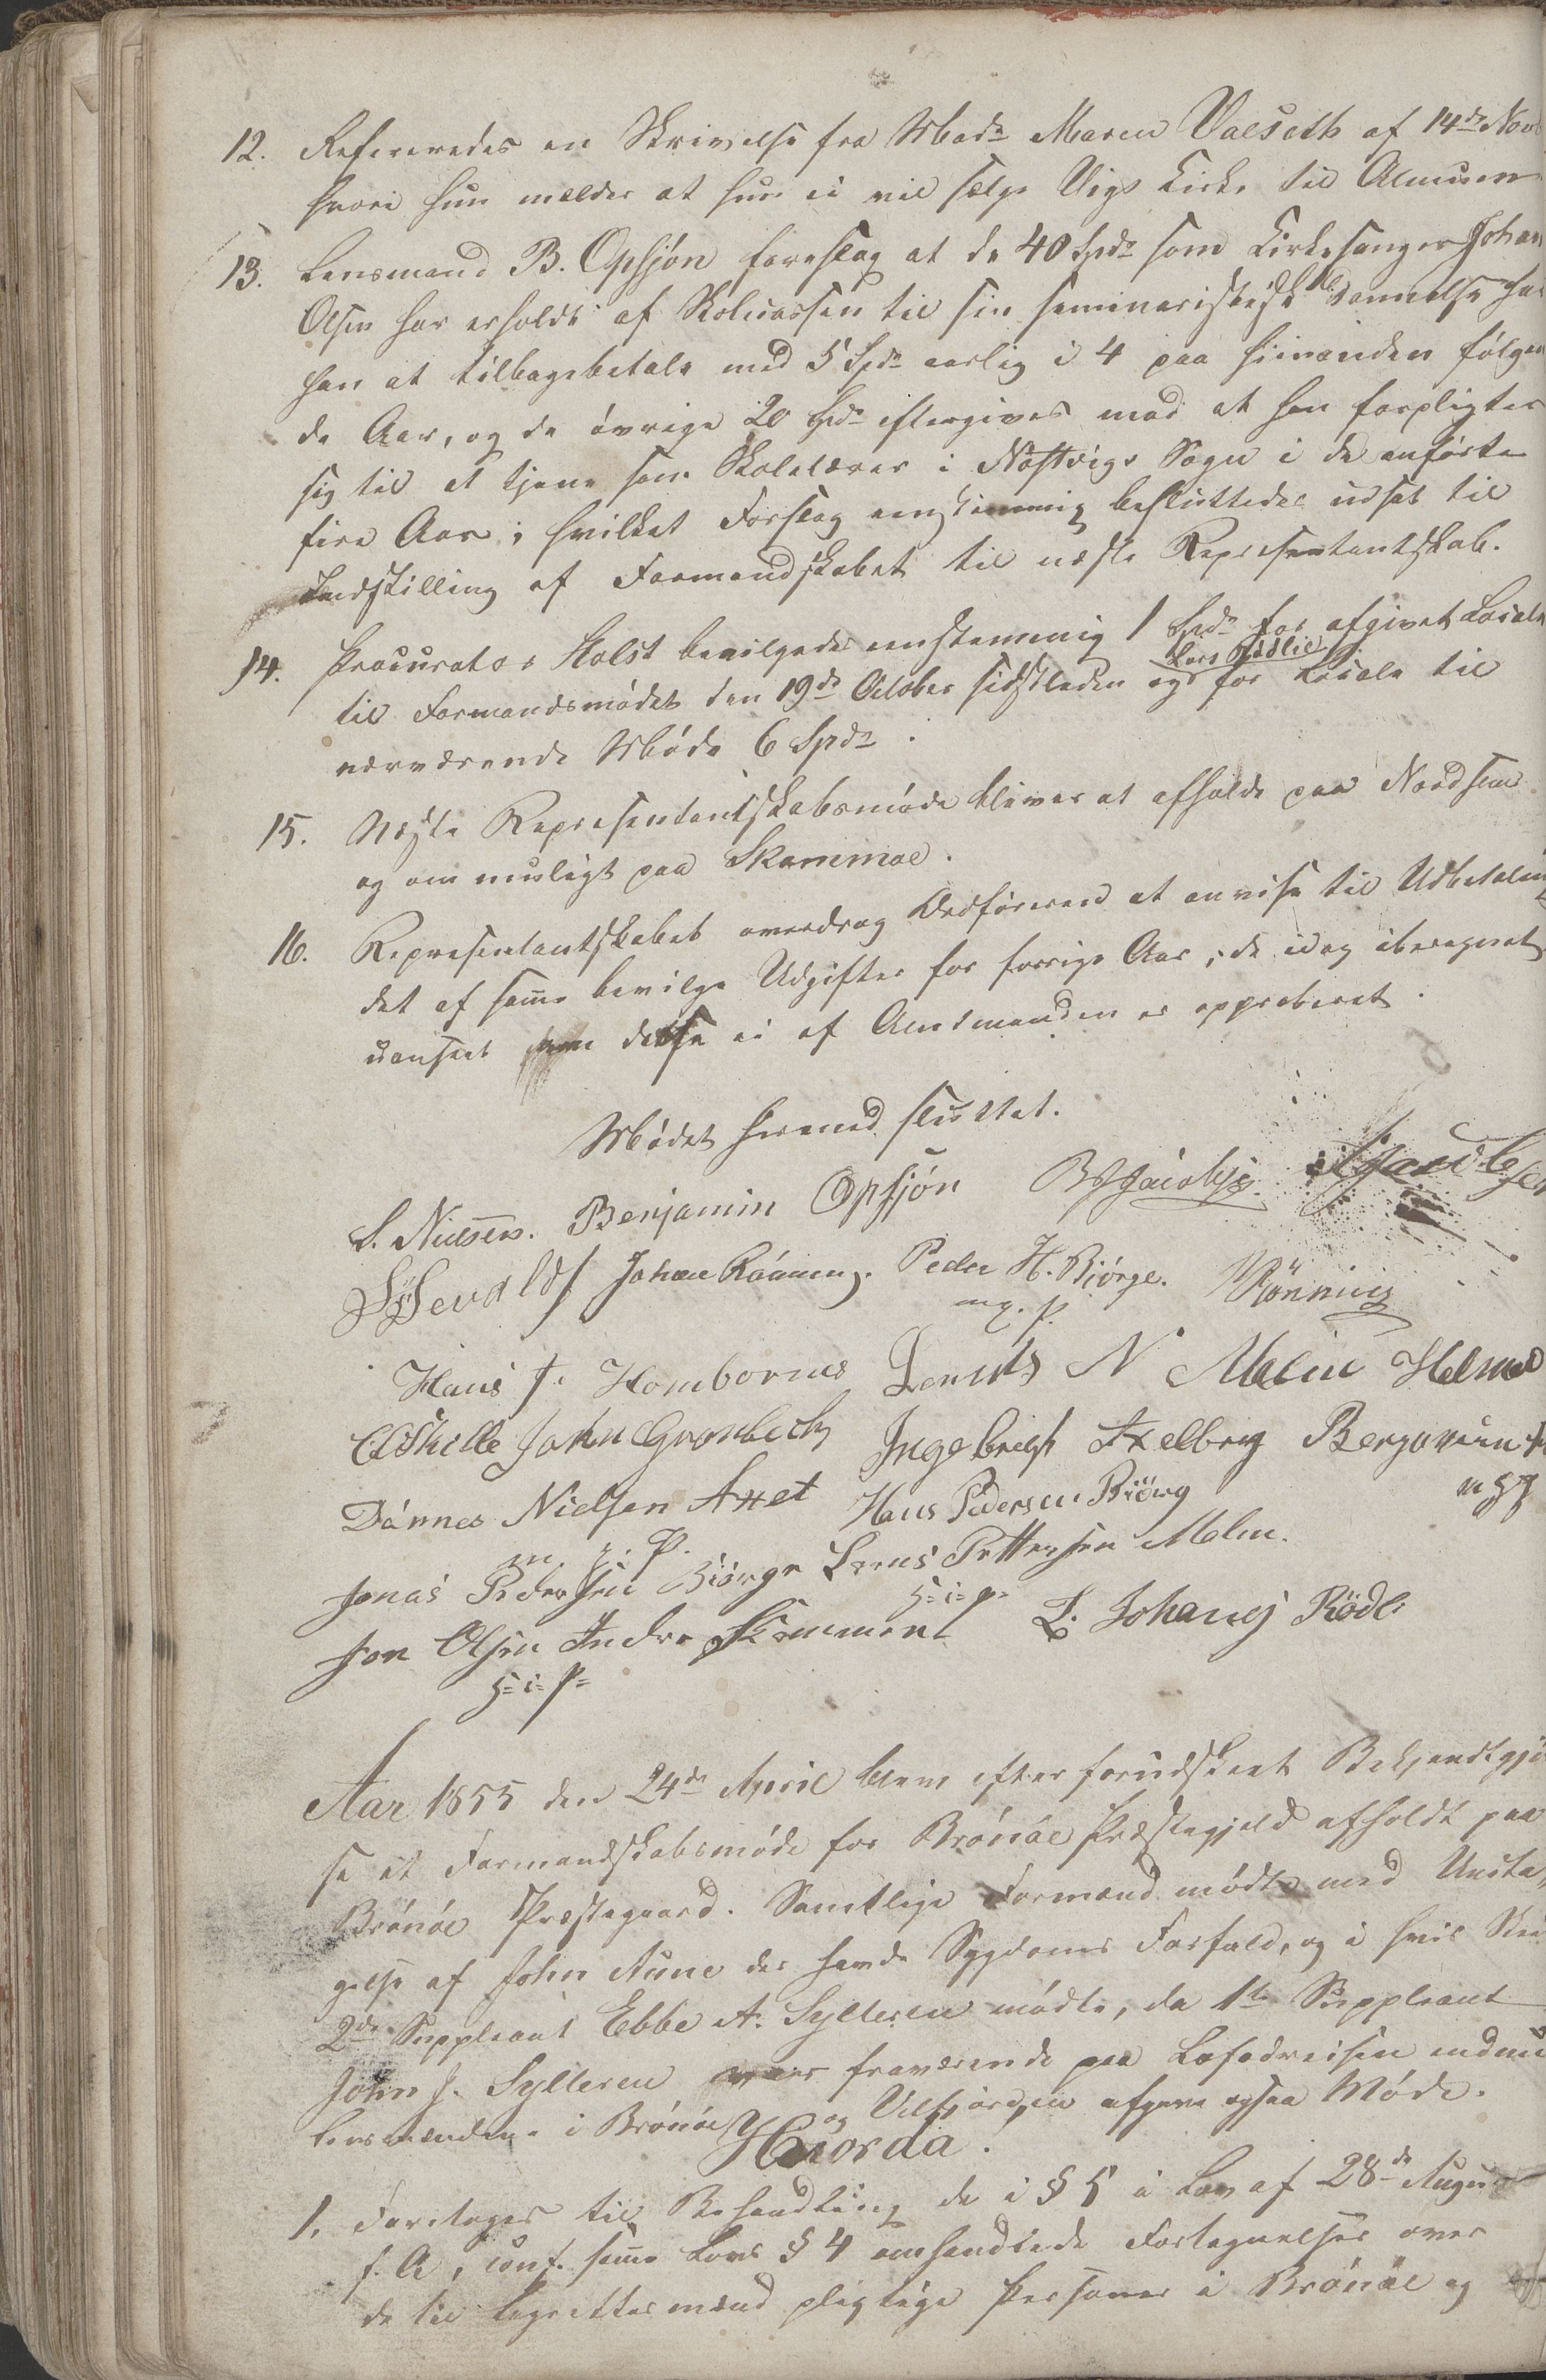 12. Refereredes en Skrivelse fra Mad: Maren Valseth af 14de Nov
hvori hun melder at hun ei vil sælge Vigs Kirke til Almuen
13. Lensmand B. Opsjøn foreslog at de 40 Spd som Kirkesanger Johan
Olsen har erholdt af Skolecassen til sin seminaristiske Dannelse har
han at tilbagebetale med 5 Spd aarlig i 4 paa hinanden følgen
de Aar, og de øvrige 20 Spd eftergives mod at han forpligter
sig til at tjene som Skolelærer i Nøstvigs Sogn i de anførte
fire Aar; hvilket Forslag eenstemmig besluttedes udsat til
Indstilling af Formandskabet til næste Representantskab.
14. Procurator Holst bevilgedes eenstemmig 1 Spd for afgivet Locale
til Formandsmødet den 19de October sidstleden og Lars Rødlie for Locale til
nærværende Møde 6 Spd.
15. Næste Representantskabsmøde bliver at afholde paa Nordhuus
og om muligt paa Skammoe.
16. Representantskabet overdrog Ordføreren at anvise til Udbetaling
det af samme bevilge Udgifter for forrige Aar, de idag iberegnet
uanseet om disse ei af Amtmanden er approberet.
Mødet hermed sluttet.
S. Nielsen. Benjamin Opsjøn B Jacobs. Jacobsen
Sevalds Johan Rønning. Peder H. Biørge. Rønning
m. p.
Hans J. Hombornes Lorents N Melin Helmer
Eskilde John Grønbech Ingebrigt Axelbrig Benjamin
Dønnes Nielsen Axet Hans Pedersen Biørg
m. i. P.
Jonas Pedersen Biørge Lorns Pettersen Melin.
h=i=p=
Jon Olsen Indre Skammen L. Johansj Rødli
h=i=p=
Aar 1855 den 24de April blev efter forudskeet Bekjendtgjø
se et Formandskabsmøde for Brønøe Præstegjeld afholdt paa
Brønøe Præstegaard. Samtlige Formænd mødte med Undta,,
gelse af John Aune der havde Sygdoms Forfald, og i hvis Sted
2den Suppleant Ebbe A. Sylteren mødte, da 1ste Suppleant
John J. Sylteren var fraværende paa Lofodreisen endnu
Lensmændene i Brønøe og Velfjorden afgave ogsaa Møde.
Hvorda:
1, Foretoges til Behandling de i § 5 i Lov af 28de August
f. A, conf. samme Lovs § 4 omhandlede Fortegnelser over
de til Lagrettesmænd pligtige Personer i Brønøe og